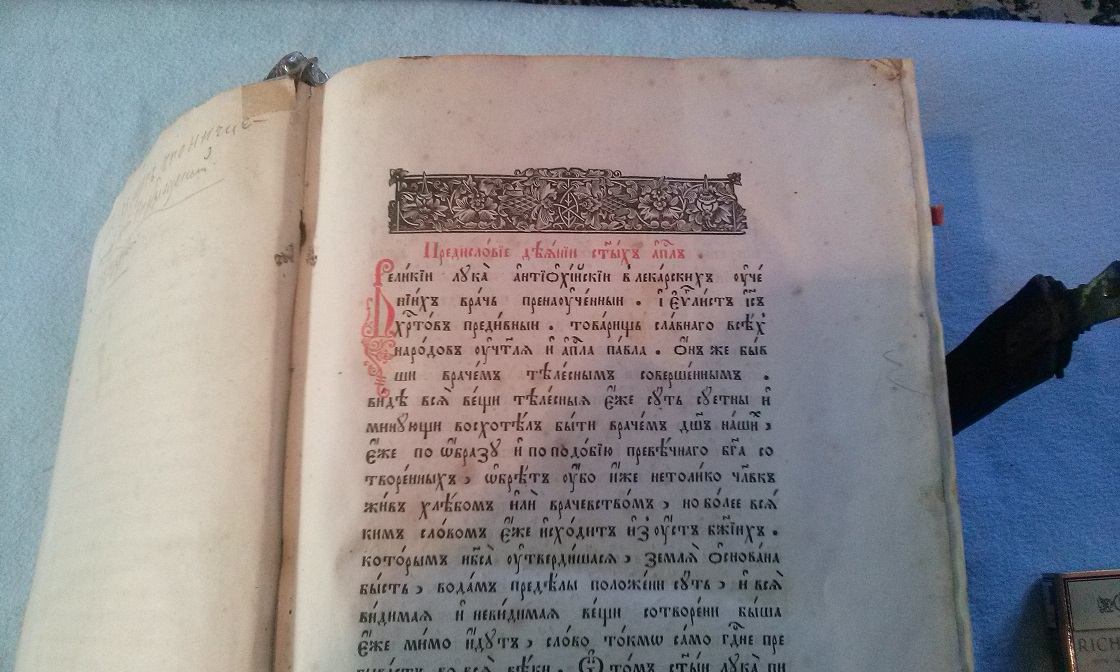 Предисло́вїе дѣѧ́нїи ст҃ы́хъ а҆пⷭ҇лъ .
Вели́кїи лꙋка̀ а҆нтїѻхі́йскїи в҆лека́рскихъ ѹ҆че́
нїихъ вра́чь пренаѹче́нныи . і҆ є҆ѵⷢ҇листъ і҆с҃ъ
хрⷭ҇то́въ преди́вныи . това́рищь сла́внаго всѣ́хъ
наро́довъ ѹ҆чт҃лѧ и҆ а҆пⷭ҇ла па́вла . Ѻ҆нъ же бы́в
ши враче́мъ тѣле́снымъ соверше́ннымъ .
ви́дѣ всѧ̀ ве́щи тѣле́сныѧ є҆́же сꙋть сꙋетны и҆
минꙋющи восхотѣ́лъ бы́ти враче́мъ дш҃ъ на́ши ,
є҆́же по ѡ҆́бразꙋ и҆ по подо́бїю превѣ́чнаго бг҃а со
творе́нныхъ , ѡ҆брѣ́тъ ѹ҆́бо и҆́же нетоли́ко чл҃вкъ
жи́въ хлѣ́бомъ и҆лѝ врачевство́мъ , но бо́лее всѧ́
кимъ сло́вомъ є҆́же и҆схо́дитъ и҆з̾ ѹ҆́стъ бж҃їихъ .
кото́рымъ нб҃са̀ ѹ҆тверди́шасѧ , землѧ̀ ѻ҆снова́на
бы́сть , вода́мъ предѣ́лы положе́ни сꙋ́ть , и҆ всѧ̀
ви́димаѧ и҆ неви́димаѧ ве́щи сотворе́ни бы́ша
є҆́же ми́мо и҆дꙋтъ , сло́во то́кмѡ са́мо гдⷭ҇не пре
во всѧ̀ вѣ́ки . Ѿ то́мъ ст҃ы́и лꙋка̀ пи
RICH